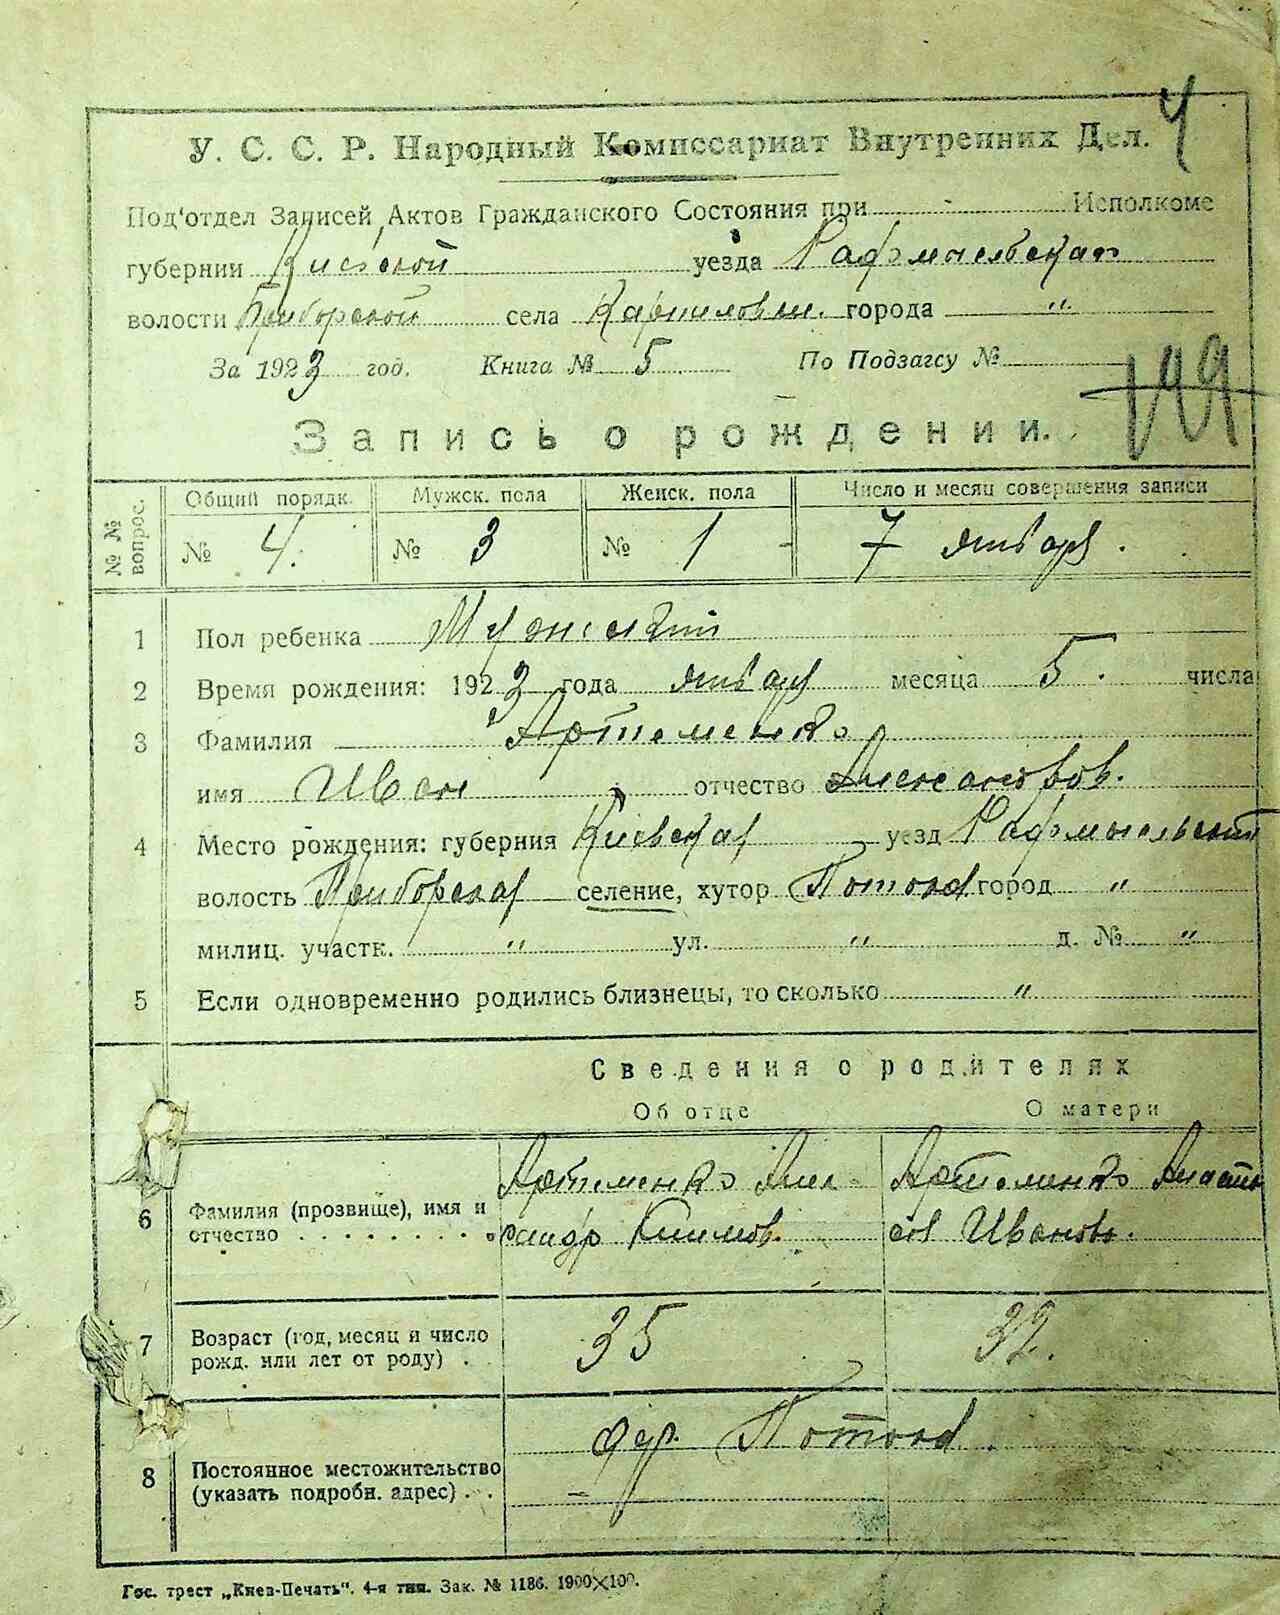 4
У. С. С. Р. Народный Комиссариат Внутренних Дел.
Под'отдел Записей Актов Гражданского Состояния при - Исполкоме
губернии Киевской уезда Радомысльскаго
волости Приборской села Карпиловки города "
За 1923 год. Книга № 5 По Подзагсу №
149
Запись о рождении.
№ № вопрос. Общий порядк. Мужск. пола Женск. пола Число и месяц совершения записи
№ 4. № 3 № 1 - 7 январ.
1 Пол ребенка Мужской
2 Время рождения: 1923 года январ месяца 5. числа
3 Фамилия Артеменко
имя Иван отчество Александров.
4 Место рождения: губерния Киевская уезд Радомысльский
волость Приборская селение, хутор город "
милиц. участк. " ул. " д. № "
5 Если одновременно родились близнецы, то сколько "
Сведения о родителях
Об отце О матери
Артеменко Алек- Артеменко Анаста
6 Фамилия (прозвище), имя и
отчество сандр Климов. сия Иванов.
7 Возраст (год, месяц и число
рожд. или лет от роду) 35 32.
дер.
8 Постоянное местожительство
(указать подробн. адрес) -
Гос. трест „Киев-Печать". 4-я тип. Зак. № 1186. 1900×100.